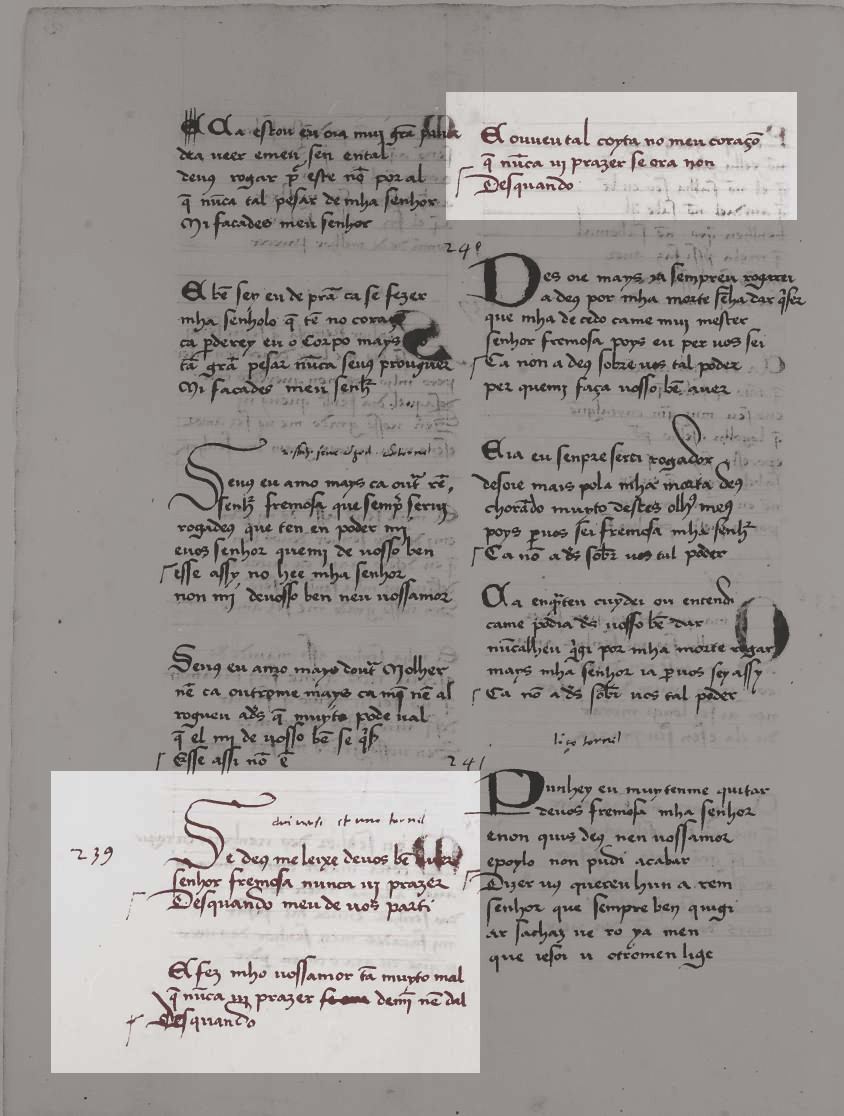 E La estou eu ora mui grã
dea veer e meu sen ental
deuꝯ rogar p̃ este nõ por al
q̃ nũca tal pesar de mha senhor
Mi facades meu senhor
E bẽ sey eu de prã ca se fezer
mha senholo q̃ tẽ no
ca ꝑderey eu o Corpo mays
tã grã pesar nũca seuꝯ prouguer
Mi facades meu senhr̃
Seuꝯ eu amo mays ca out̃ rẽ
senhr̃ fremosa que semp̃ serui
rogadeuꝯ que ten en poder mi
euos senhor quemi de uosso ben
esse assy no hee mha senhor
non mi deuosso ben neu uossamor
Seuꝯ eu amo mays dout̃ Molher
nẽ ca outrome mays ca mĩ nẽ al
rogueu ad̃s q̃ muyto pode ual
q̃ el mi de uosso bẽ se
Esse assi nõ ẽ
239
Se deuꝯ me leixe deuos bẽ
senhor fremosa nunca ui prazer
Desquando meu de uos parti
E fez mho uossamor tã muyto mal
q̃ nũca ui prazer demĩ nẽ dal
Desquando
E ouueu tal coyta no meu coraçõ
q̃ nũca ui prazer se ora non
Desquando
240
Des oie mays ia sempreu rogarei
a deꝯ por mha morte
que mha de cedo came mui mester
senhor fremosa poys eu per uos sei
Ca non a deꝯ sobre uos tal poder
per quemi faça uosso bẽ auer
E ia eu senpre serei rogador
desoie mais pola mha morta deꝯ
chorãdo muyto destes olhꝯ meꝯ
poys ꝑuos sei fremosa mha senhr̃
Ca nõ a ds̃ sobr̃ uos tal poder
Ca enq̃nteu cuydei ou entendi
came podia ds̃ uosso bẽ dar
nũcalheu q̃gi por mha morte rogar
mays mha senhor ia ꝑuos sey assy
Ca nõ a ds̃ sobr̃ uos tal poder
241
Punhey eu muytenme quitar
deuos fremosa mha senhor
enon quis deꝯ nen uossamor
epoylo non pudi acabar
Dizer uꝯ quereu hun a rem
senhor que sempre ben quigi
ar sachaz ue ro ya men
que